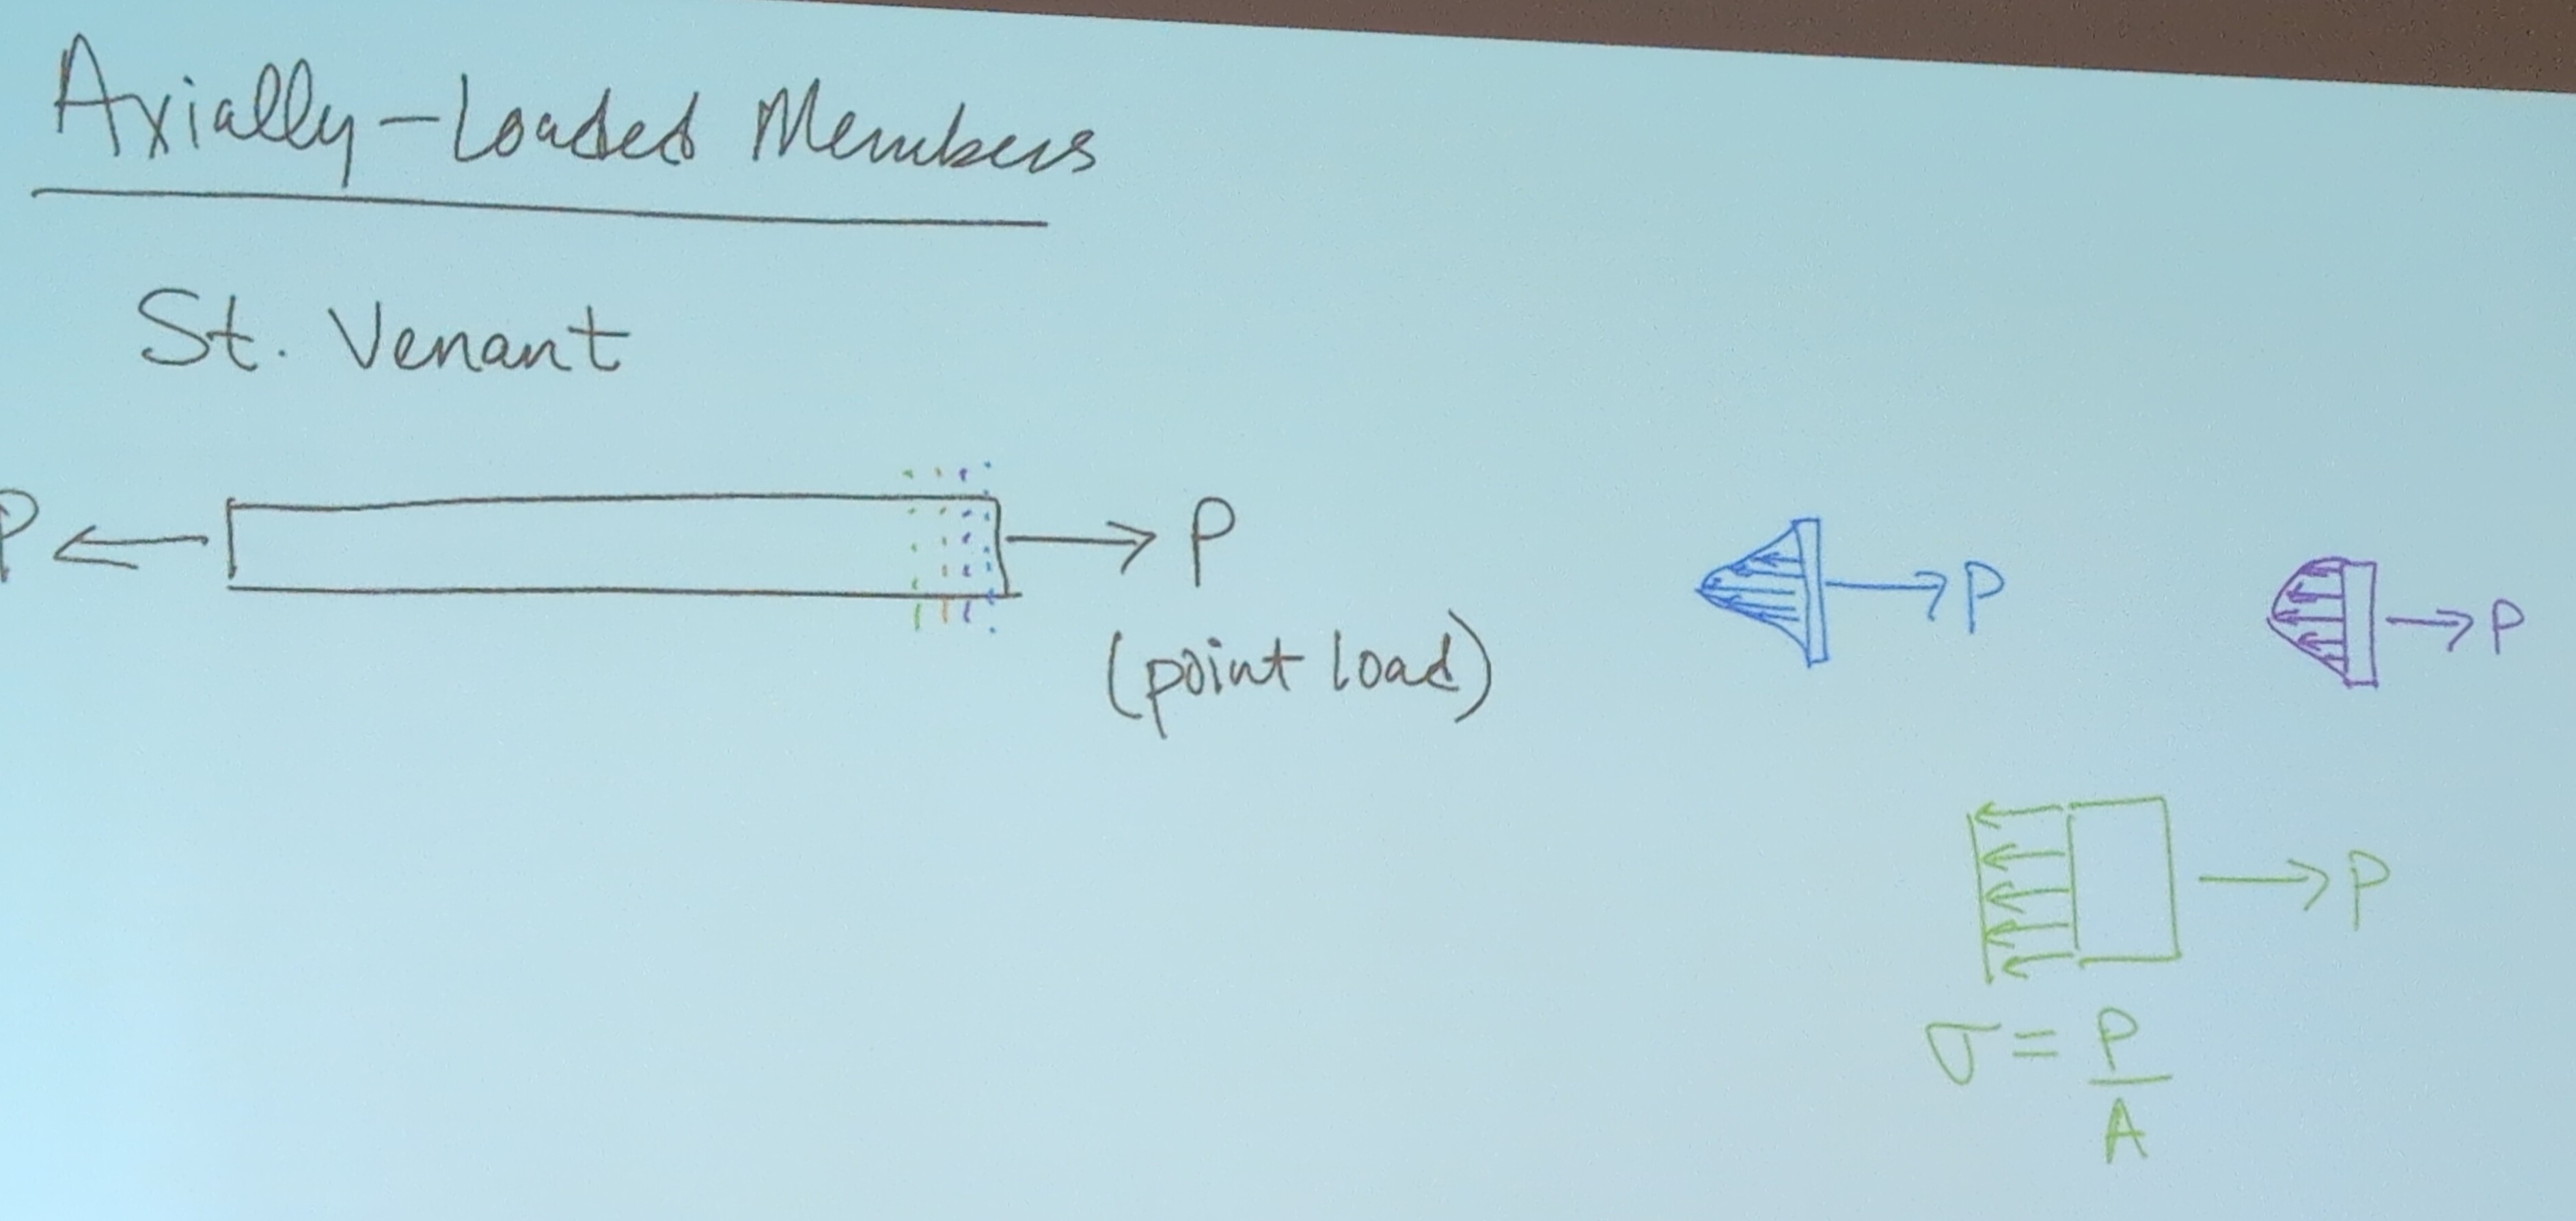 Axially-Loaded Members
St. Venant
P
P
(point load)
P
P
P
σ = P
A